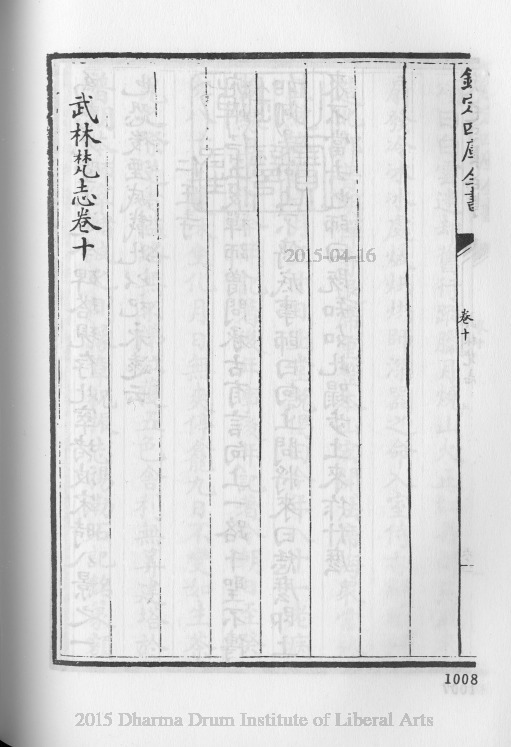 欽定四庫全書
卷十
武林梵志卷十
2015-04-16
1008
2015 Dharma Drum Institute of Liberal Arts